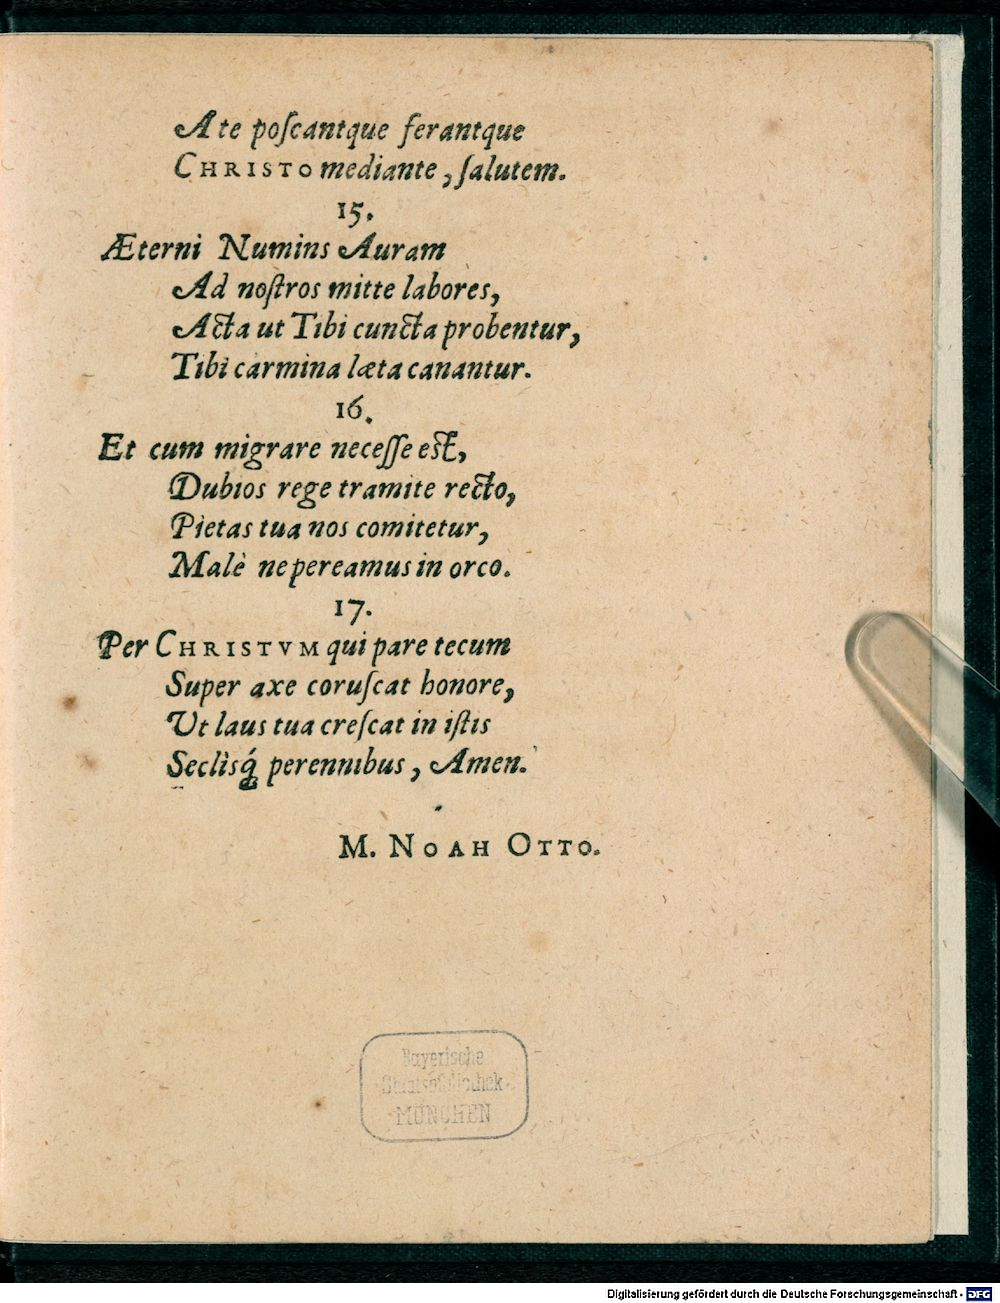 A te poſcantque ferantque
CHRISTO mediante, ſalutem.
15.
Æterni Numins Auram
Ad noſtros mitte labores,
Acta ut Tibi cuncta probentur,
Tibi carmina læta canantur.
16.
Et cum migrare neceſſe eſt,
Dubios rege tramite recto,
Pietas tua nos comitetur,
Malè ne pereamus in orco.
17.
Per CHRISTVM qui pare tecum
Super axe coruſcat honore,
Ut laus tua creſcat in iſtis
Seclisq́ perennibus, Amen.
M. NOAH OTTO.
Bayerische
Staatsbibliothek
MÜNCHEN
Digitalisierung gefördert durch die Deutsche Forschungsgemeinschaft - DFG